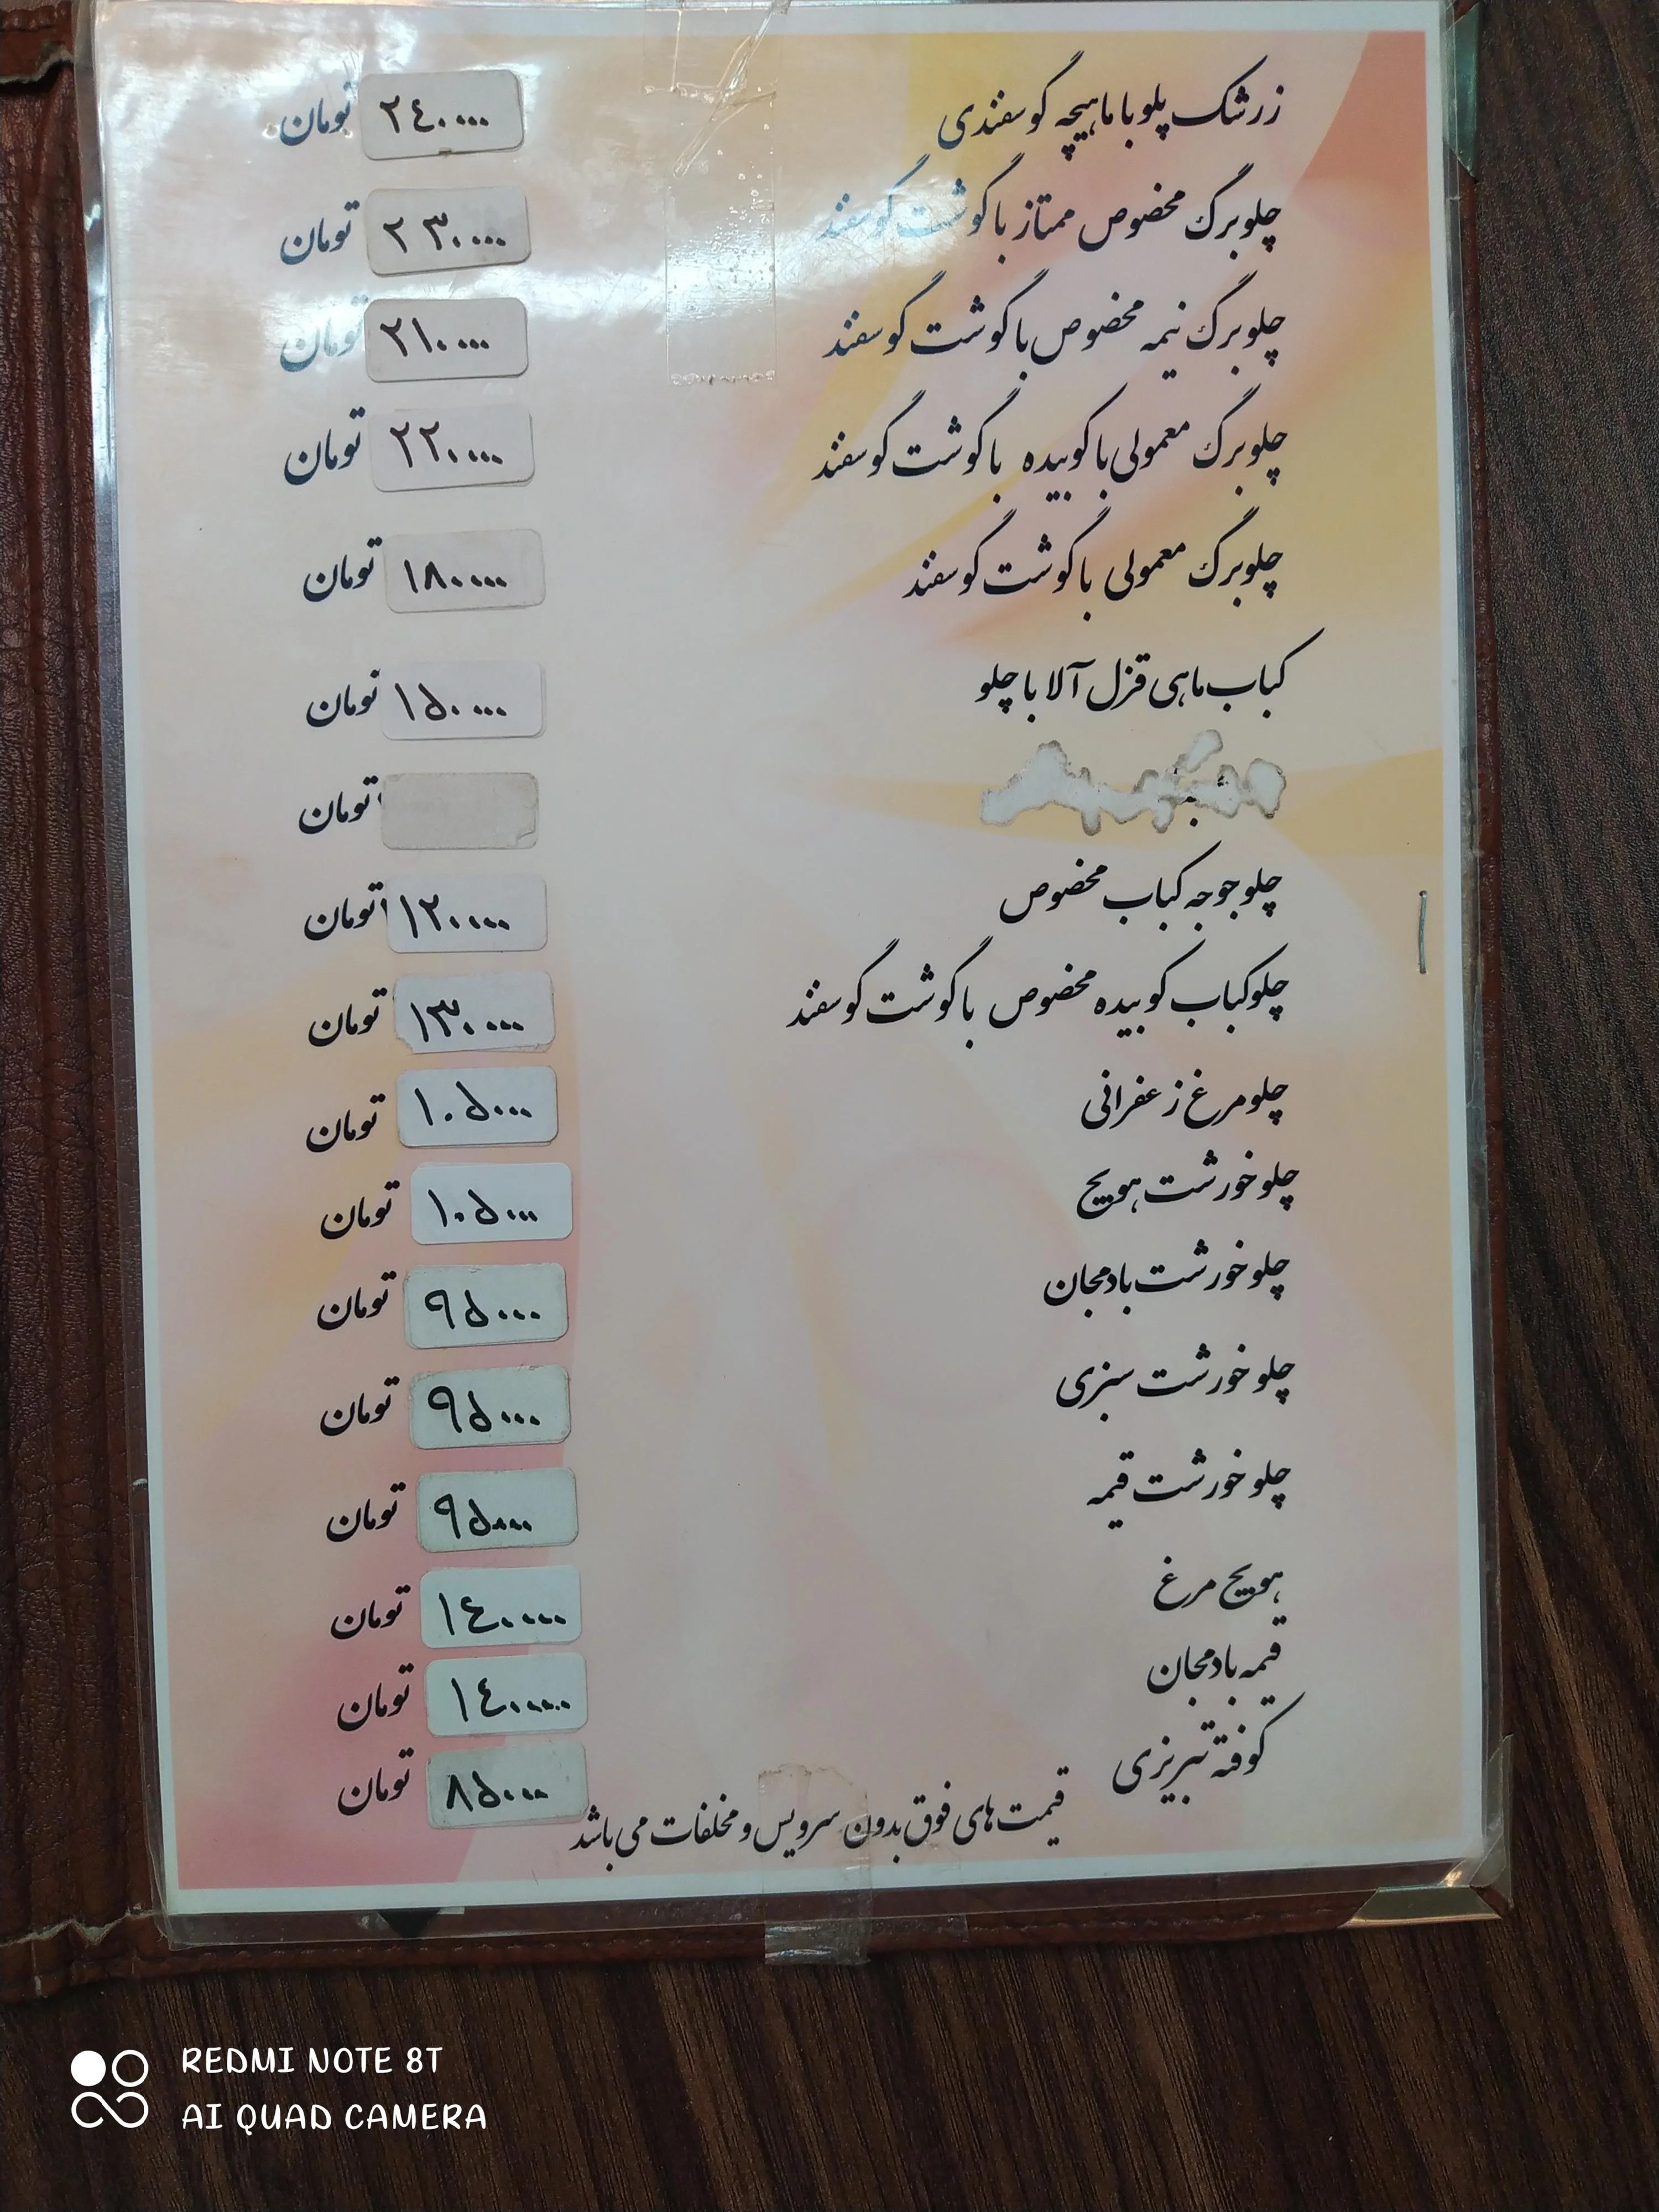 زرشک پلو با ماهیچه گوسفندی ۲۴۰۰۰۰ تومان
چلو برگ مخصوص ممتاز با گوشت گوسفند ۲۳۰۰۰۰ تومان
چلو برگ نیمه مخصوص با گوشت گوسفند ۲۱۰۰۰۰ تومان
چلو برگ معمولی با کوبیده با گوشت گوسفند ۲۲۰۰۰۰ تومان
چلو برگ معمولی با گوشت گوسفند ۱۸۰۰۰۰ تومان
کباب ماهی قزل آلا با چلو ۱۵۰۰۰۰ تومان
تومان
چلو جوجه کباب مخصوص ۱۲۰۰۰۰ تومان
چلو کباب کوبیده مخصوص با گوشت گوسفند ۱۳۰۰۰۰ تومان
چلو مرغ زعفرانی ۱۰۵۰۰۰ تومان
چلو خورشت هویج ۱۰۵۰۰۰ تومان
چلو خورشت بادمجان ۹۵۰۰۰ تومان
چلو خورشت سبزی ۹۵۰۰۰ تومان
چلو خورشت قیمه ۹۵۰۰۰ تومان
هویج مرغ ۱۴۰۰۰۰ تومان
قیمه بادمجان ۱۴۰۰۰۰ تومان
کوفته تبریزی ۸۵۰۰۰ تومان
قیمت های فوق بدون سرویس و مخلفات می باشد
REDMI NOTE 8T
AI QUAD CAMERA